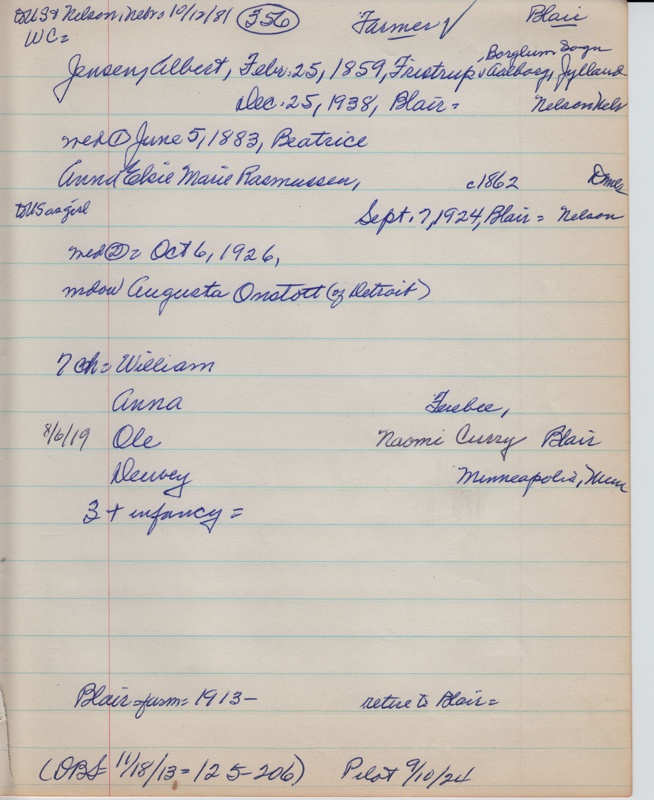 to US & Nelson, Nebr 10/12/81 356 Farmer ✓ Blair
WC=
Borglum Sogn
Jensen, Albert, Febr. 25, 1859, Fristrup, Aalborg, Jylland
Dec. 25, 1938, Blair = Nelson Nebr
med ① June 5, 1883, Beatrice
Anna Elsie Marie Rasmussen, c1862 Dmk
to US as girl Sept. 7, 1924, Blair = Nelson
med ② = Oct 6, 1926,
widow Augusta Onstott (of Detroit)
7 ch = William
Anna Ferebee,
8/6/19 Ole Naomi Curry Blair
Dewey Minneapolis, Minn
3 + infancy =
Blair = farm = 1913 - retire to Blair =
(OBS 11/18/13 = 125-206) Pilot 9/10/24